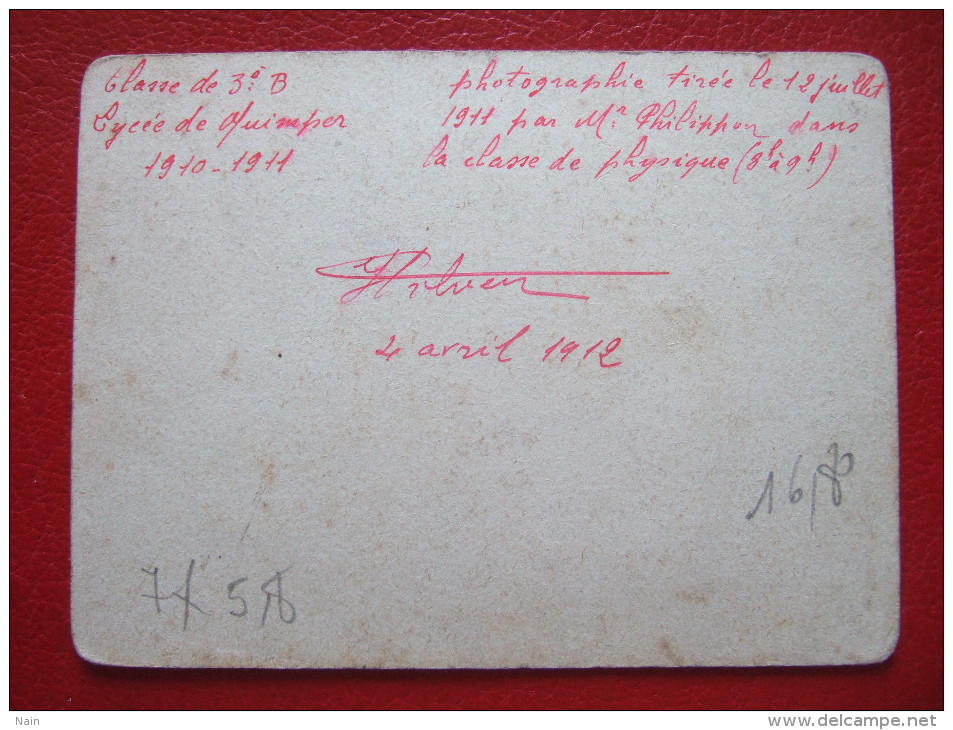 Classe de 3e B
Lycée de Quimper
1910-1911
photographie tirée le 12 juillet
1911 par Mr Philippon dans
la classe de physique (8h à 9h)
4 avril 1912
16,
7 X 5,
Nain
www.delcampe.net